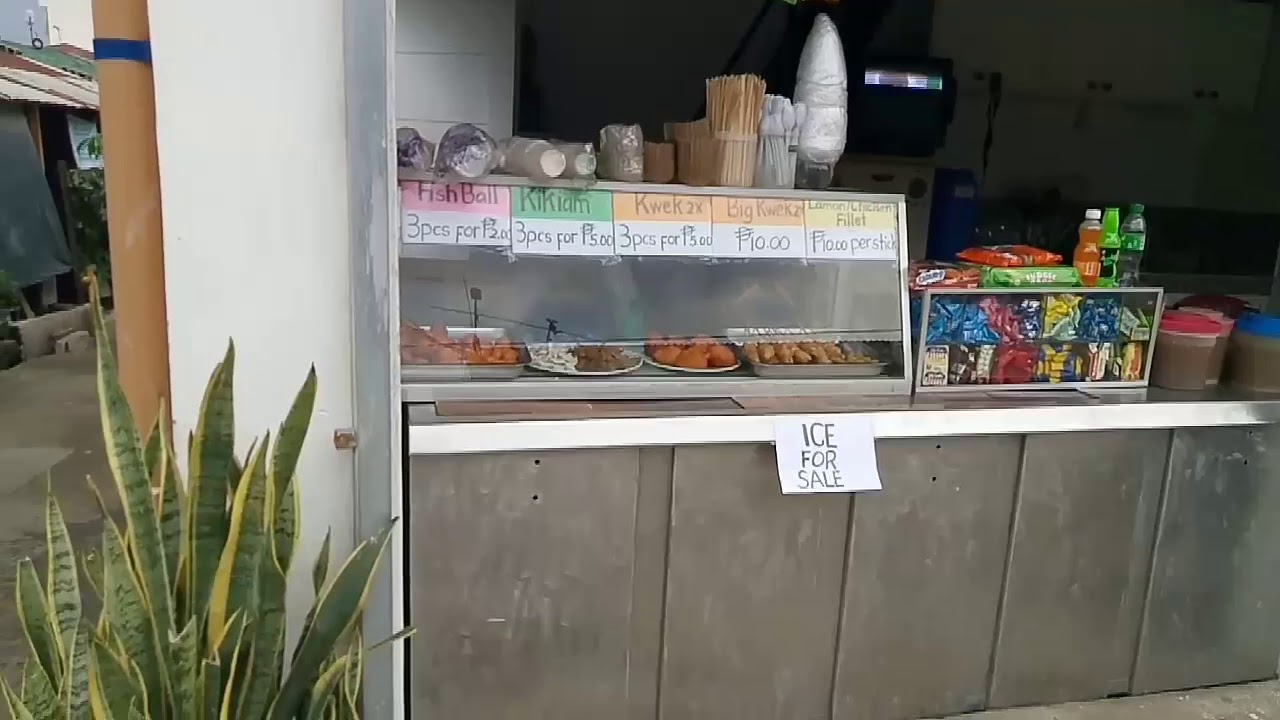 Fish Ball
3pcs for ₱2.00
Kikiam
3pcs for ₱5.00
Kwek2x
3pcs for ₱5.00
Big Kwek2
₱10.00
Lamon/Chicken
Fillet
₱10.00 per stick
ICE
FOR
SALE